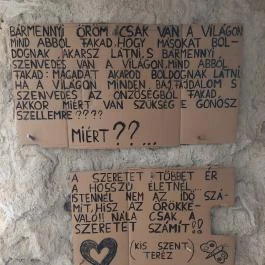 BÁRMENNYI ÖRÖM CSAK VAN A VILÁGON
MIND ABBÓL FAKAD, HOGY MÁSOKAT BOL-
DOGNAK AKARSZ LÁTNI, S BÁRMENNYI
SZENVEDÉS VAN A VILÁGON, MIND ABBÓL
FAKAD: MAGADAT AKAROD BOLDOGNAK LÁTNI.
HA A VILÁGON MINDEN BAJ, FÁJDALOM S
SZENVEDÉS AZ ÖNZŐSÉGBŐL FAKAD,
AKKOR MIÉRT VAN SZÜKSÉG E GONOSZ
SZELLEMRE ????
MIÉRT ??...
A SZERETET TÖBBET ÉR
A HOSSZÚ ÉLETNÉL...
ISTENNÉL NEM AZ IDŐ SZÁ-
MÍT, HISZ AZ ÖRÖKKÉ-
VALÓ!! NÁLA CSAK A
SZERETET SZÁMÍT!!
KIS SZENT
TERÉZ